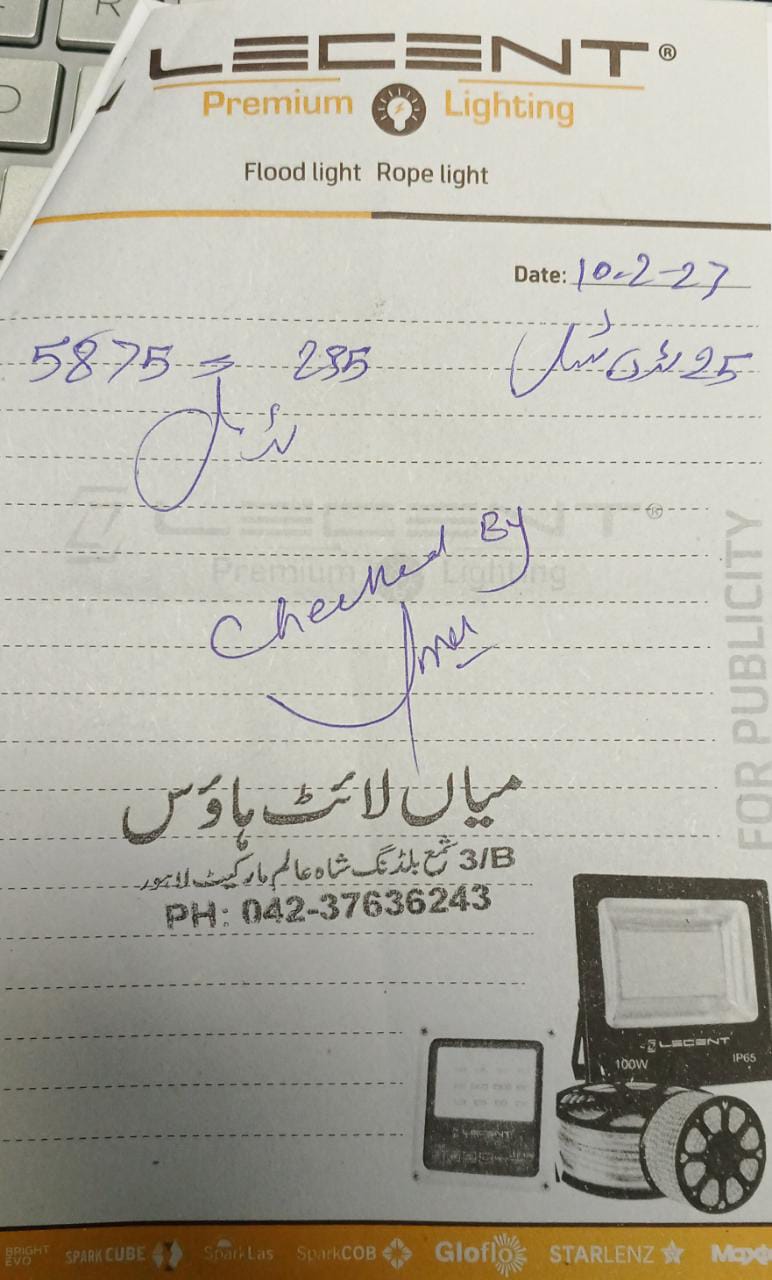 LECENT®
Premium Lighting
Flood light Rope light
Date: 10-2-23
25 235 = 5875
LECENT®
Premium Lighting
Checked By
FOR PUBLICITY
میاں لائٹ ہاؤس
3/B شمع بلڈنگ شاہ عالم مارکیٹ لاہور
PH: 042-37636243
LECENT
100W IP65
LECENT
BRIGHT EVO SPARK CUBE SparkLas SparkCOB Gloflo STARLENZ